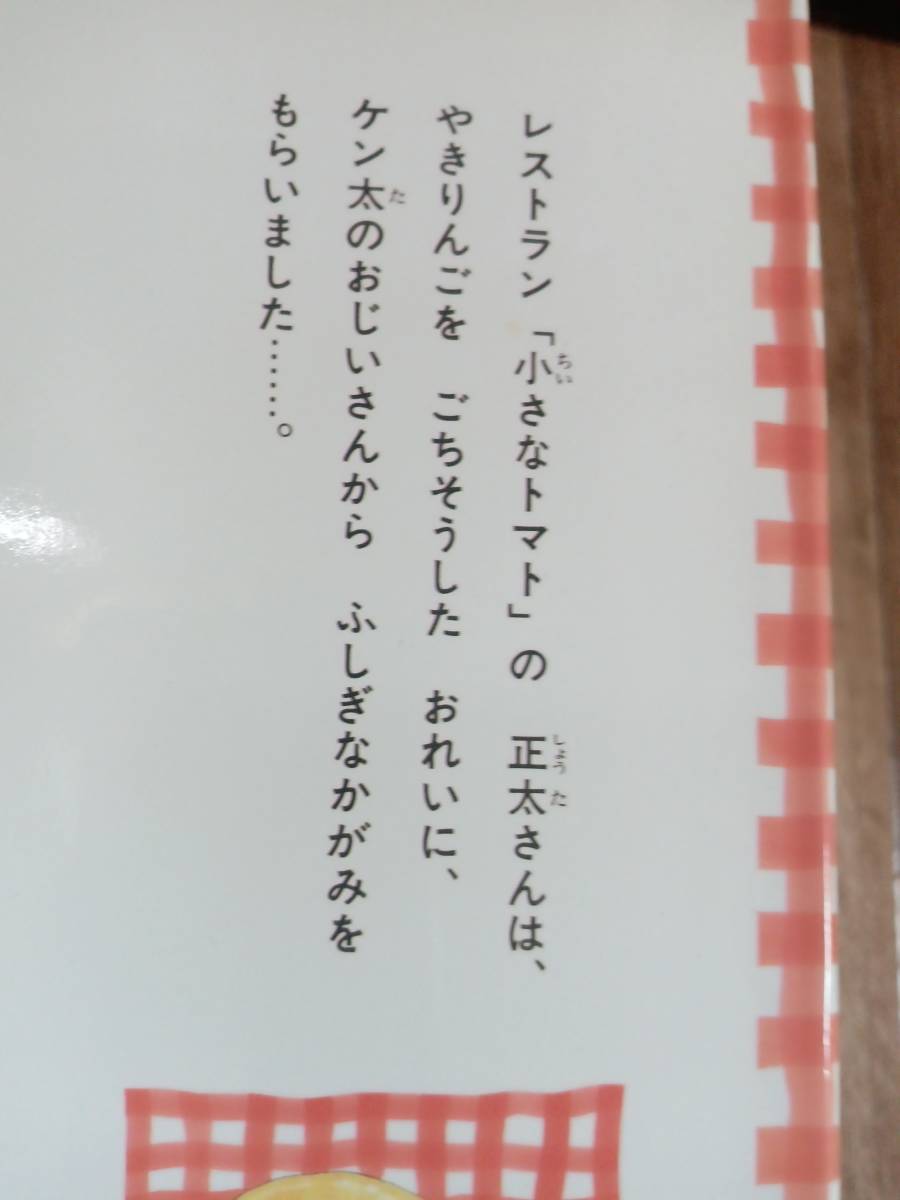 レストラン「小さなトマト」の　正太さんは、
やきりんごを　ごちそうした　おれいに、
ケン太のおじいさんから　ふしぎなかがみを
もらいました……。